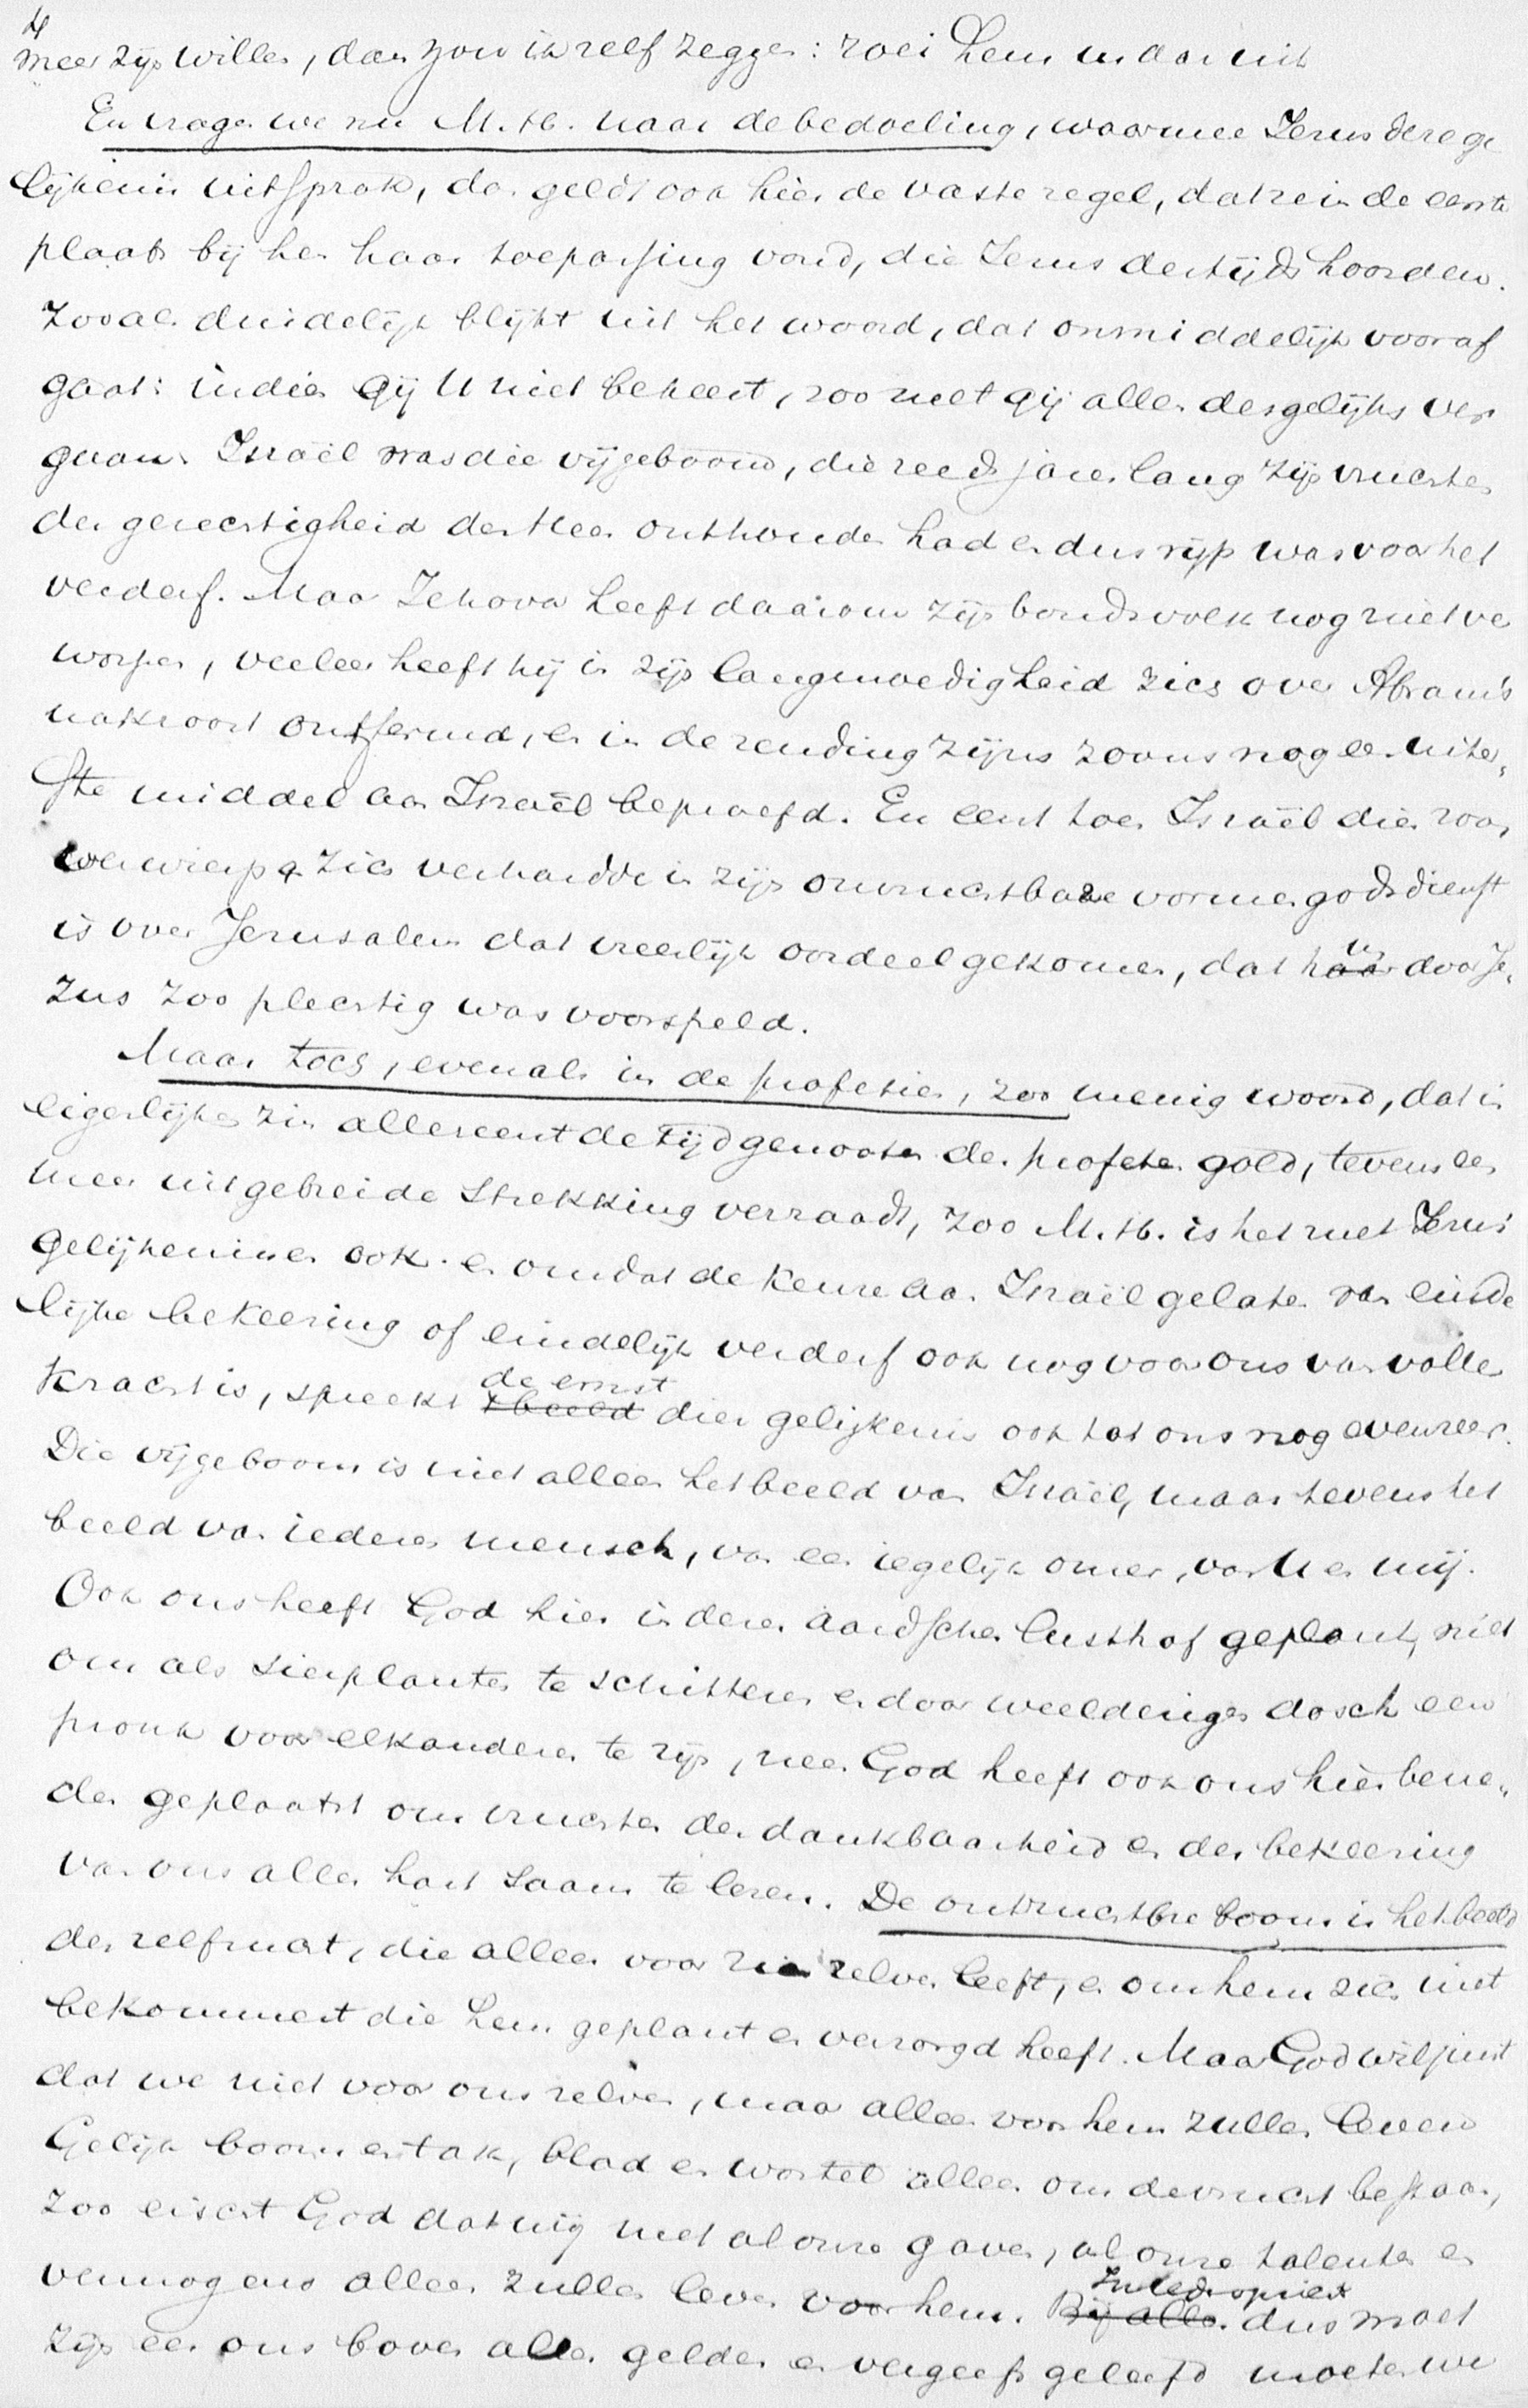 meer zijn willen, dan zou ik zelf zeggen: roei hem dan uit
En vragen we nu M. H. naar de bedoeling, waarmee Jezus deze ge
lijkenis uitsprak, dan geldt ook hier de vaste regel, dat ze in de eerste
plaats bij hen haar toepassing vond, die Jezus destijds hoorden.
Zooals duidelijk blijkt uit het woord, dat onmiddelijk vooraf
gaat: indien gij U niet bekeert, zoo zult gij allen desgelijks ver
gaan. Israël was die vijgeboom, die reeds jaren lang zijn vruchten
der gerechtigheid den Heer onthouden had en dus rijp was voor het
verderf. Maar Jehova heeft daarom zijn bondsvolk nog niet ver
worpen, veeleer heeft hij in zijn langmoedigheid zich over Abram's
nakroost ontfermd, en in de zending zijns zoons nog een uiter„
ste middel aan Israël beproefd. En eerst toen Israël dien zoon
verwierp en zich verhardde in zijn onvruchtbare vormengodsdienst
is over Jerusalem dat vreeslijk oordeel gekomen, dat haar door Je„
zus zoo plechtig was voorspeld.
Maar toch, evenals in de profetien, zoo menig woord, dat in
eigenlijken zin allereerst de tijdgenooten der profeten gold, tevens een
meer uitgebreide strekking verraadt, zoo M. H. is het met Jezus'
gelijkenissen ook. en omdat de keuze aan Israël gelaten van einde
lijke bekeering of eindelijk verderf ook nog voor ons van volle
kracht is, spreekt t beeld de ernst dier gelijkenis ook tot ons nog evenzeer.
Die vijgeboom is niet alleen het beeld van Israël, maar tevens het
beeld van iederen mensch, van een iegelijk onzer, van U en mij.
Ook ons heeft God hier in dezen aardschen lusthof geplant, niet
om als sierplanten te schitteren en door weelderigen dosch een
pronk voor elkanderen te zijn, neen God heeft ook ons hier bene„
den geplaatst om vruchten der dankbaarheid en der bekeering
van ons aller hart saam te lezen. De onvruchtbre boom is het beeld
der zelfzucht, die alleen voor zich zelven leeft, en om hem zich niet
bekommert die hem geplant en verzorgd heeft. Maar God wil juist
dat we niet voor ons zelven, maar alleen voor hem zullen leven
Gelijk boom en tak, blad en wortel alleen om de vrucht bestaan,
zoo eischt God dat wij met al onze gaven, al onze talenten en
vermogens alleen zullen leven voor hem. Bij allen dus moet
zijn eer ons boven allen gelden en vergeefs geleefd moeten we